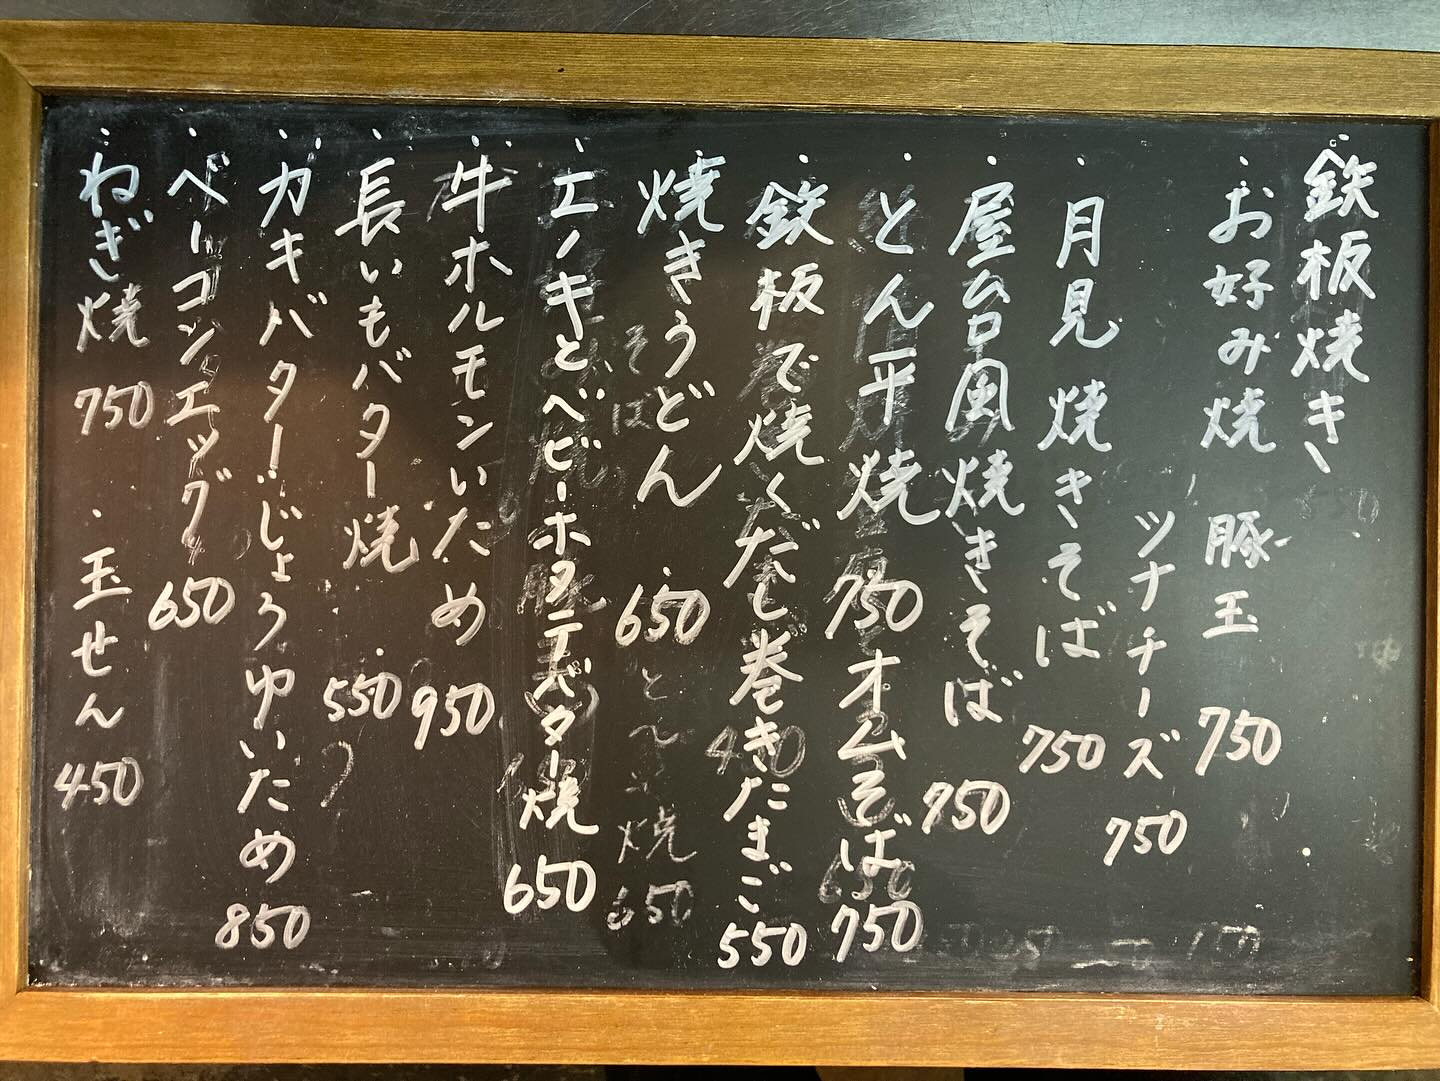 鉄板焼き
・お好み焼 豚玉 750
ツナチーズ 750
・月見焼きそば 750
・屋台風焼きそば 750
・とん平焼 750 オムそば 750
・鉄板で焼くだし巻きたまご 550
・焼きうどん 650
・エノキとベビーホタテバター焼 650
・牛ホルモンいため 950
・長いもバター焼 550
・カキバターじょうゆいため 850
・ベーコンエッグ 650
・ねぎ焼 750 ・玉せん 450